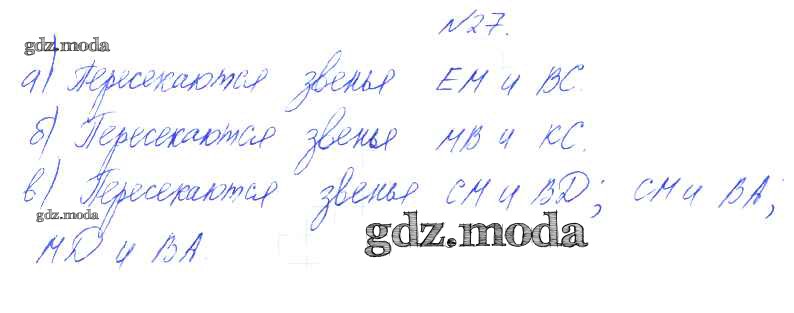 №27.
gdz.moda
а) Пересекаются звенья ЕМ и ВС.
б) Пересекаются звенья МВ и КС.
в) Пересекаются звенья СМ и ВD; СМ и ВА;
gdz.moda
МD и ВА.
gdz.moda